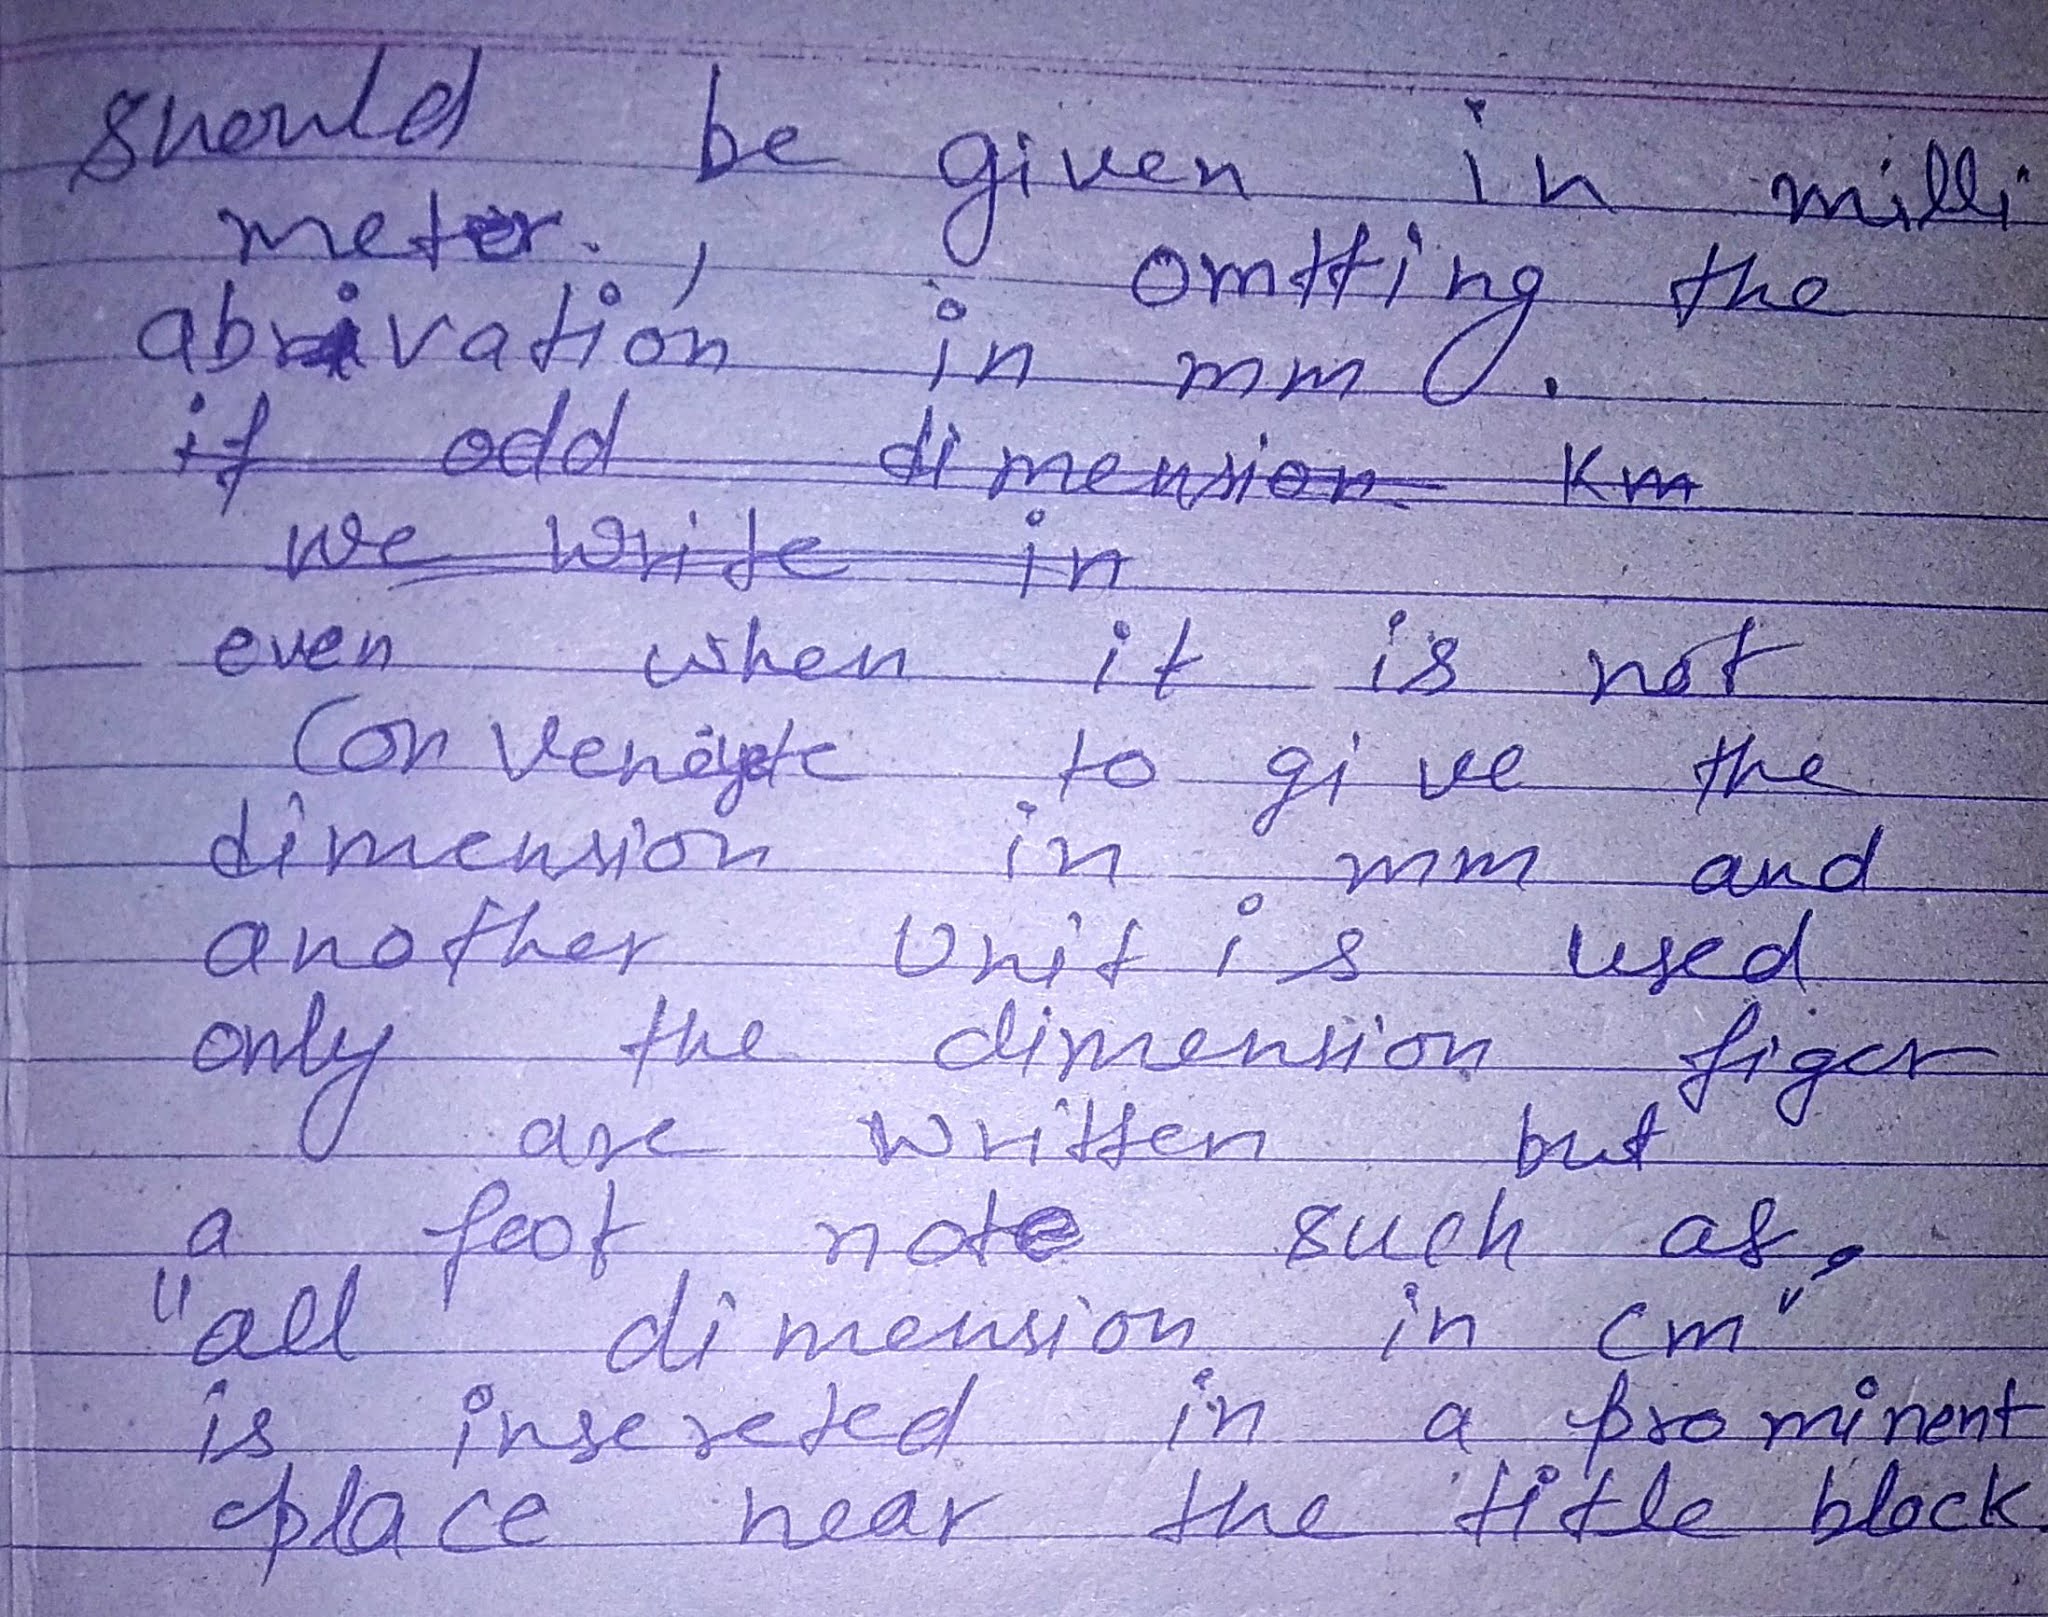 should be given in milli
meter., omtting the
abrivation in mm.
if odd dimension km
we write in
even when it is not
to give the
dimension in mm and
another unit is used
only the dimension figer
are written but
a foot note such as,
"all dimension in cm"
is insereted in a prominent
place near the title block.